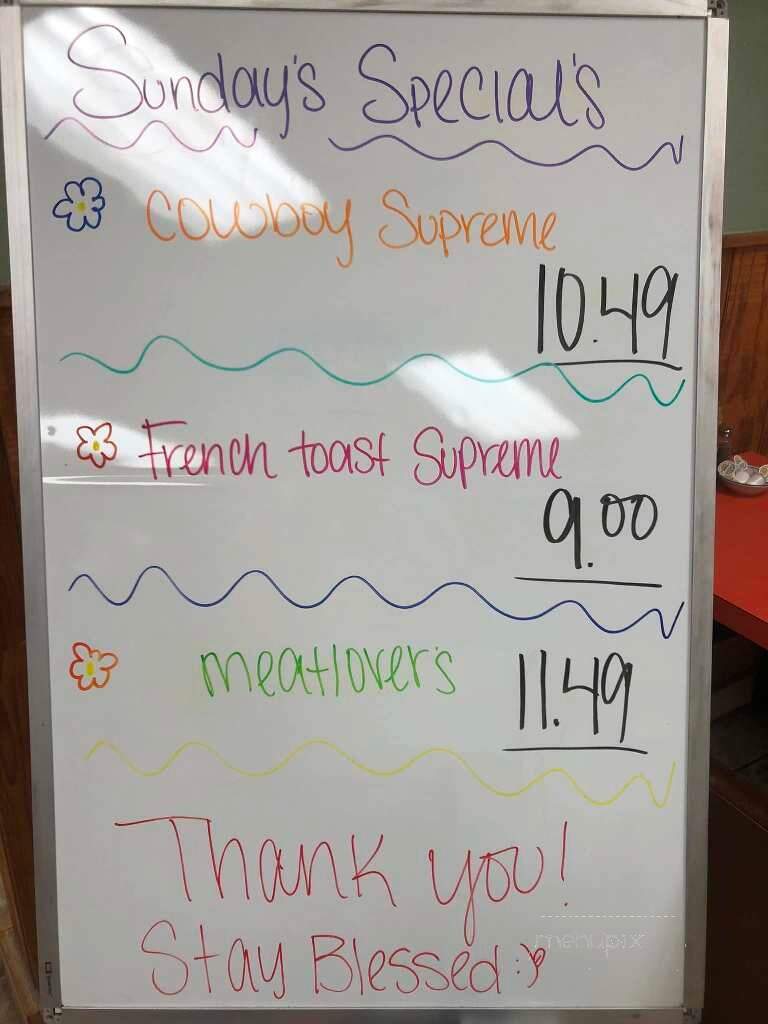 Sunday's Special's
Cowboy Supreme
10.49
French toast Supreme
9.00
meatlover's
11.49
Thank you!
Stay Blessed :)
menupix